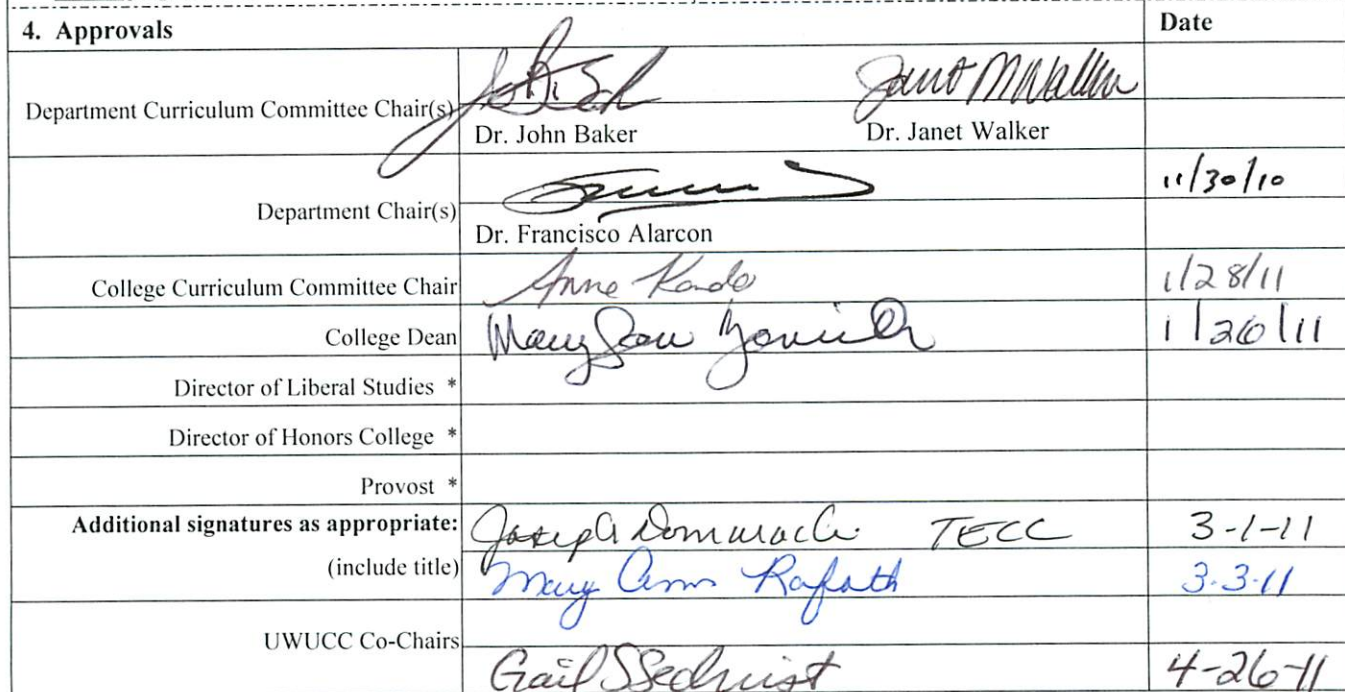 4. Approvals Date
Department Curriculum Committee Chair(s)
Dr. John Baker Dr. Janet Walker
Department Chair(s) 11/30/10
Dr. Francisco Alarcon
College Curriculum Committee Chair Anne Kondo 1/28/11
College Dean Mary 1/26/11
Director of Liberal Studies *
Director of Honors College *
Provost *
Additional signatures as appropriate: Joseph Domaracki TECC 3-1-11
(include title) Mary Ann Rafoth 3.3.11
UWUCC Co-Chairs
Gail S Sechrist 4-26-11